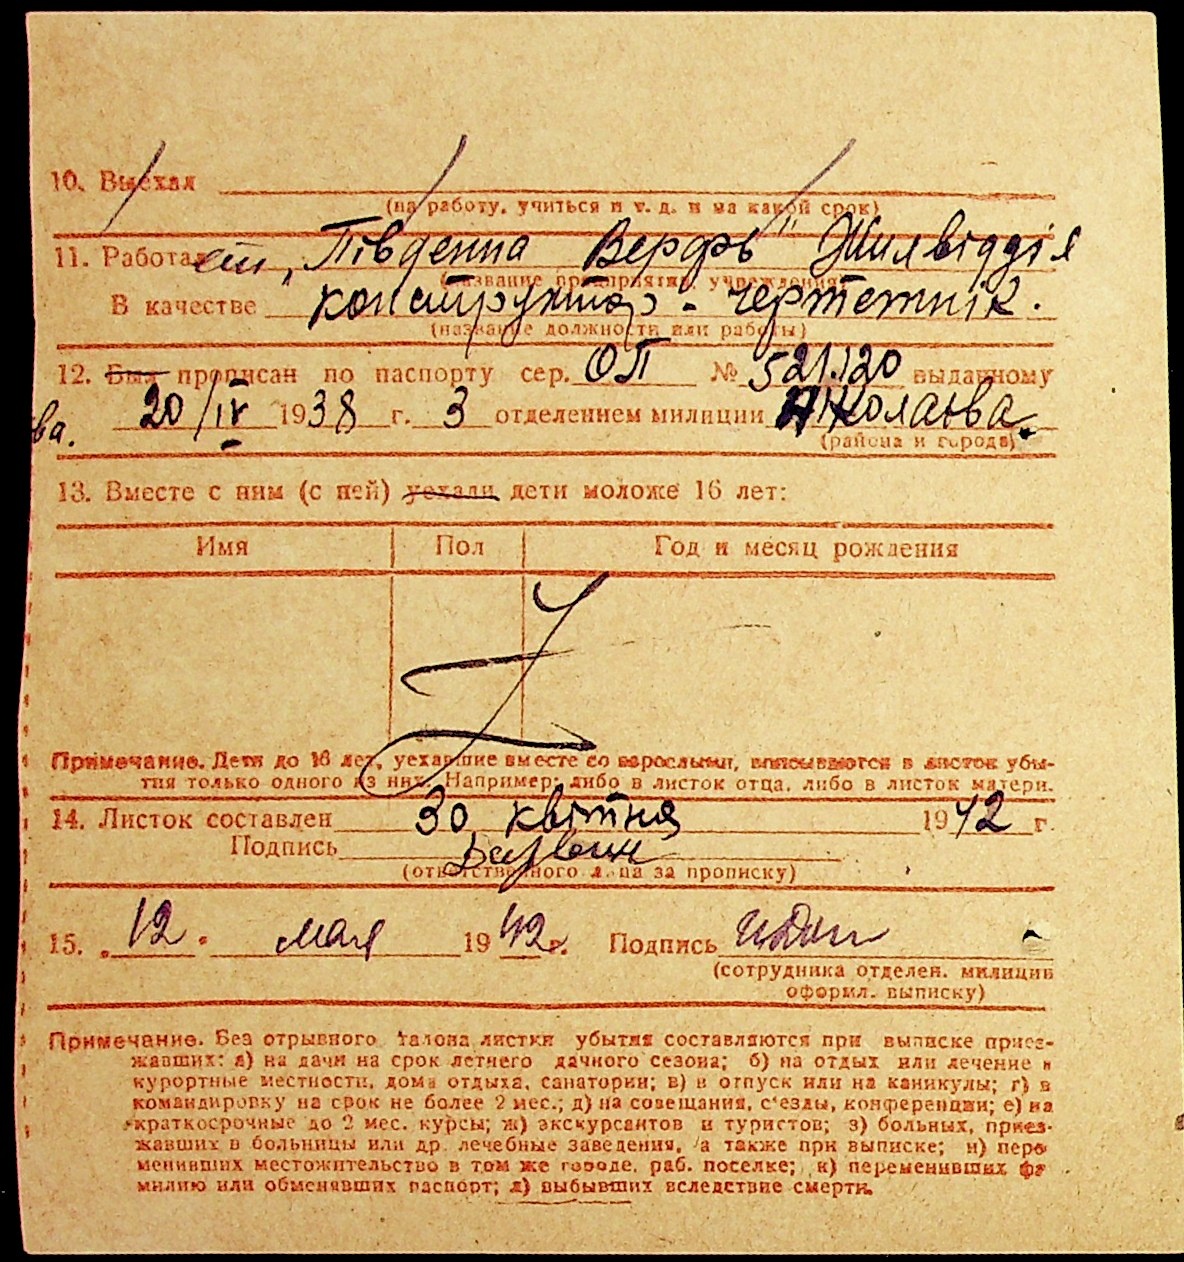 10. Выехал
(на работу, учиться и т. д. и на какой срок)
11. Работа ет „Південна Верфь" Жилвідділ
(название предприятия, учреждения)
В качестве конструктор - чертежник.
(название должности или работы)
12. Был прописан по паспорту сер. ОП № 521120 выданному
20/IV 1938 г. 3 отделением милиции Николаєва.
ва.
(района и города)
13. Вместе с ним (с ней) уехали дети моложе 16 лет:
Имя Пол Год и месяц рождения
Примечание. Дети до 16 лет, уехавшие вместе со взрослыми, вписываются в листок убы-
тия только одного из них. Например: либо в листок отца, либо в листок матери.
14. Листок составлен 30 квітня 1942 г.
Подпись
(ответственного лица за прописку)
15. „12" мая 1942 г. Подпись
(сотрудника отделен. милиции
оформл. выписку)
Примечание. Без отрывного талона листки убытия составляются при выписке приез-
жавших: а) на дачи на срок летнего дачного сезона; б) на отдых или лечение в
курортные местности, дома отдыха, санатории; в) в отпуск или на каникулы; г) в
командировку на срок не более 2 мес.; д) на совещания, с'езды, конференции; е) на
краткосрочные до 2 мес. курсы; ж) экскурсантов и туристов; з) больных, приез-
жавших в больницы или др. лечебные заведения, а также при выписке; и) пере
менивших местожительство в том же городе, раб. поселке; к) переменивших фа
милию или обменявших паспорт; л) выбывших вследствие смерти.